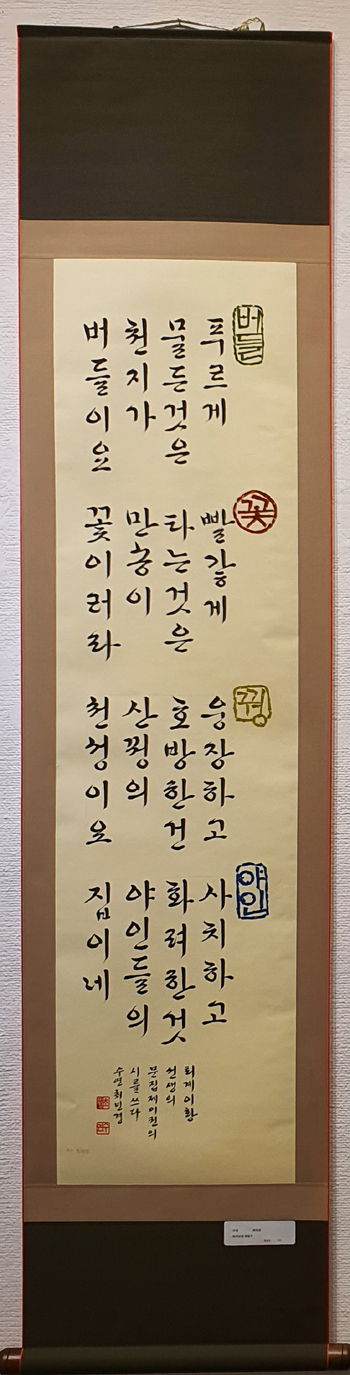 버들
푸르게
물든것은
천지가
버들이요
꽃
빨갛게
타는것은
만층이
꽃이러라
꿩
웅장하고
호방한건
산꿩의
천성이요
야인
사치하고
화려한것
야인들의
집이네
퇴계이황
선생의
문집제이권의
시를쓰다
수연최민경